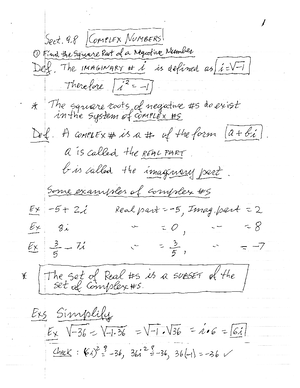 1
Sect. 9.8 COMPLEX NUMBERS
① Find the Square Root of a Negative Number
Def. The IMAGINARY # i is defined as i = √-1
Therefore i² = -1
* The square roots of negative #s do exist
in the System of COMPLEX #s
Def. A COMPLEX # is a # of the form a + bi.
a is called the REAL PART
b is called the imaginary part.
Some examples of complex #s
Ex -5 + 2i Real part = -5, Imag. part = 2
Ex 8i " = 0, " = 8
Ex 3/5 - 7i " = 3/5, " = -7
* The set of Real #s is a SUBSET of the
set of Complex #s.
Exs Simplify
Ex √-36 = √-1·36 = √-1 · √36 = i·6 = 6i
Check: (6i)² ?= -36, 36i² ?= -36, 36(-1) = -36 ✓